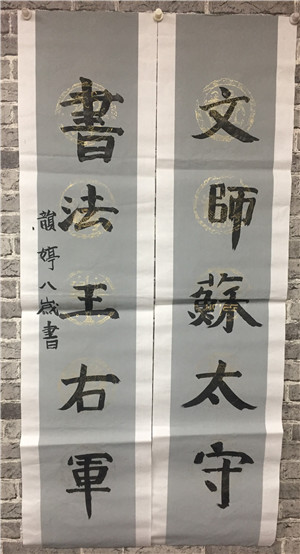 文師蘇太守
書法王右軍
韻婷八歲書